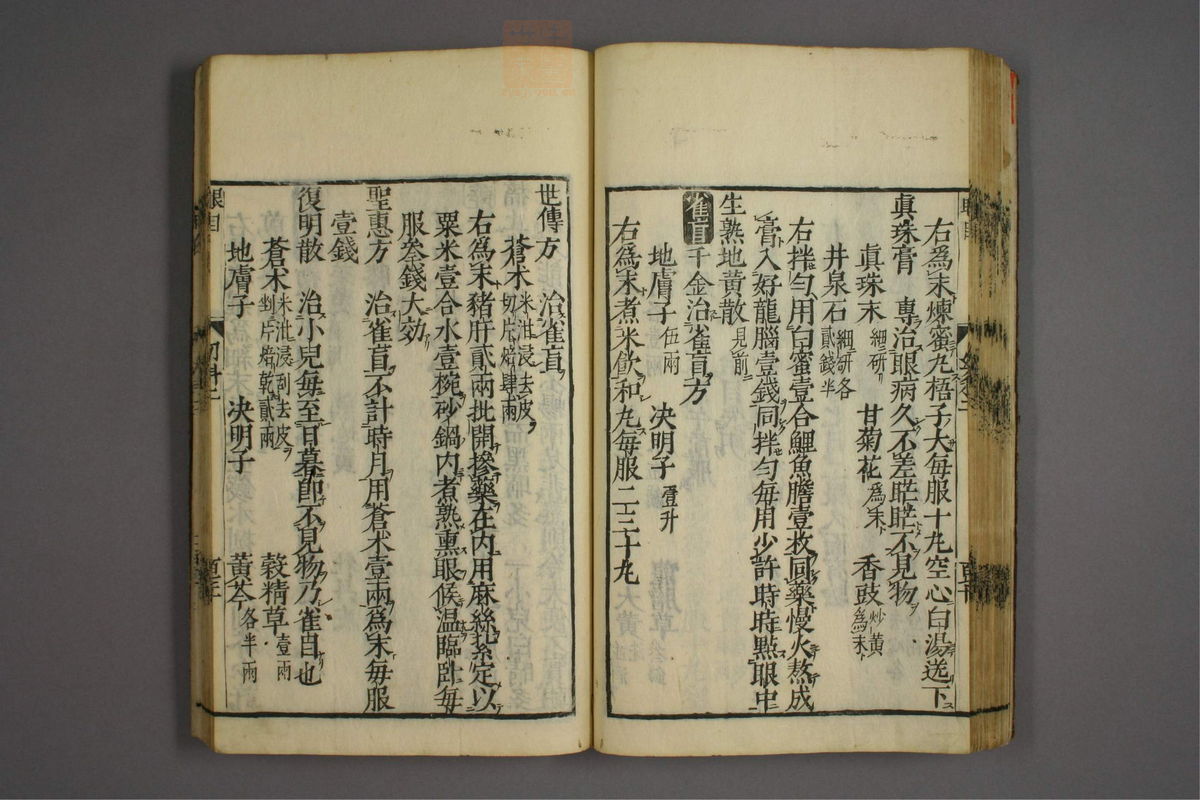 右爲末煉蜜丸梧子大每服十丸空心白湯送下
眞珠膏　專治眼病久不差䀮䀮不見物
眞珠末細研　甘菊花爲末　香豉炒黃爲末
井泉石細研各貳錢半
右拌勻用白蜜壹合鯉魚膽壹枚同藥慢火熬成
膏入好龍腦壹錢同拌勻每用少許時時點眼中
生熟地黃散見前
雀盲　千金治雀盲方
地膚子伍兩　決明子壹升
右爲末煮米飲和丸每服二三十丸
世傳方　治雀盲
蒼朮米泔浸去皮切片焙肆兩
右爲末猪肝貳兩批開摻藥在內用麻絲扎定以
粟米壹合水壹椀砂鍋內煮熟熏眼候温臨卧每
服叁錢大効
聖惠方　治雀盲不計時月用蒼朮壹兩爲末每服
壹錢
復明散　治小兒每至日暮卽不見物乃雀目也
蒼朮米泔浸刮去皮剉片焙乾貳兩　穀精草壹兩
地膚子　決明子　黃芩各半兩
眼目